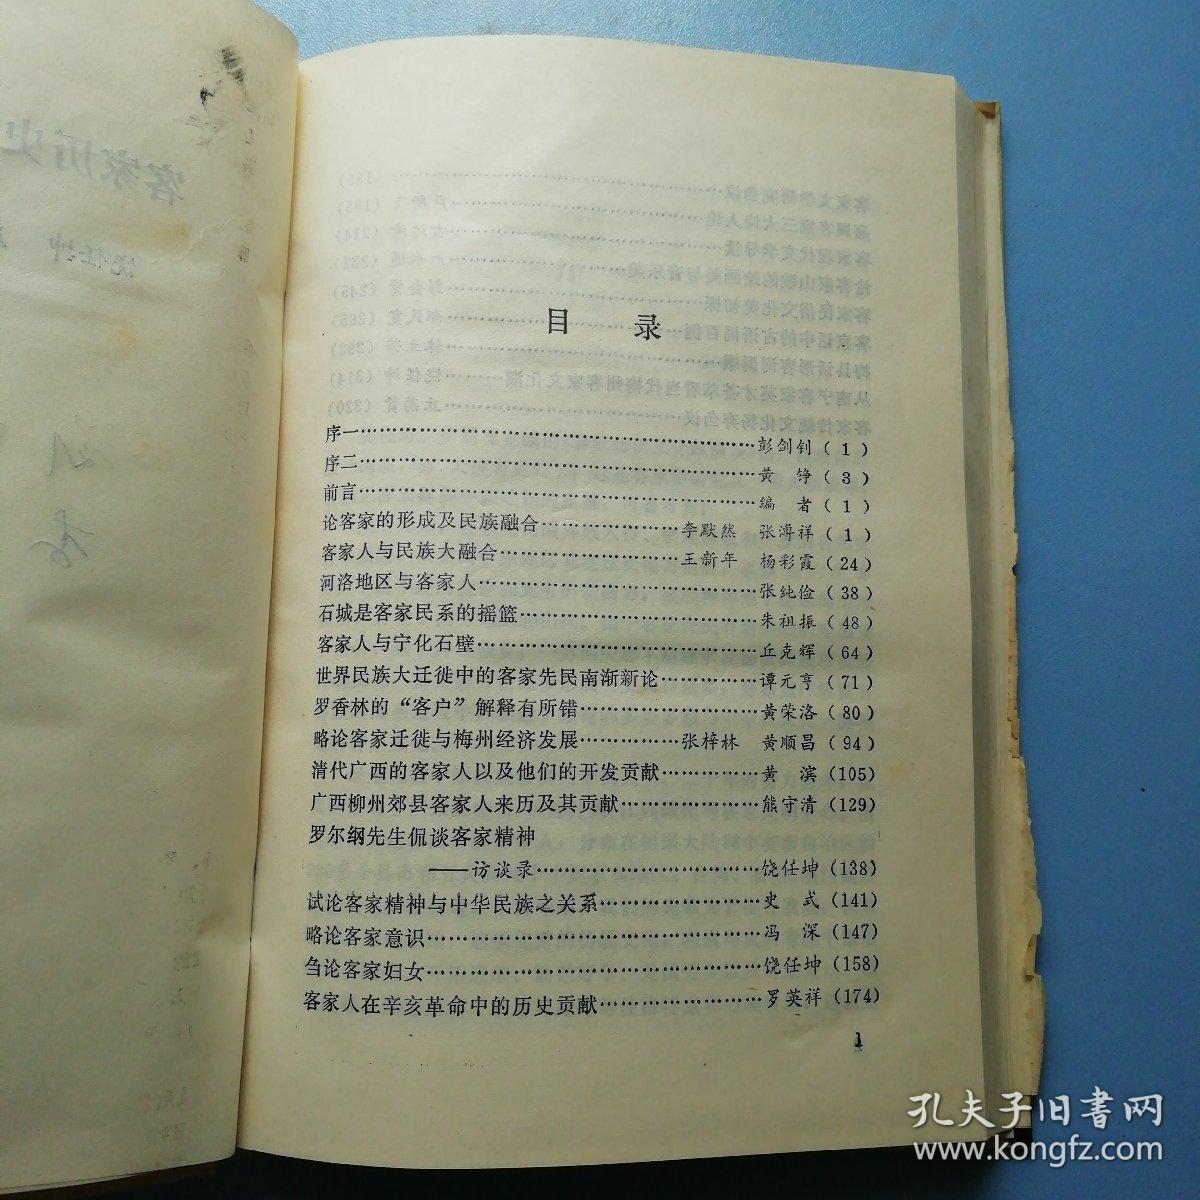 目　录
序一……彭剑钊（1）
序二……黄　铮（3）
前言……编　者（1）
论客家的形成及民族融合……李默然　张海祥（1）
客家人与民族大融合……王新年　杨彩霞（24）
河洛地区与客家人……张纯俭（38）
石城是客家民系的摇篮……朱祖振（48）
客家人与宁化石壁……丘克辉（64）
世界民族大迁徙中的客家先民南渐新论……谭元亨（71）
罗香林的“客户”解释有所错……黄荣洛（80）
略论客家迁徙与梅州经济发展……张梓林　黄顺昌（94）
清代广西的客家人以及他们的开发贡献……黄　滨（105）
广西柳州郊县客家人来历及其贡献……熊守清（129）
罗尔纲先生侃谈客家精神
——访谈录……饶任坤（138）
试论客家精神与中华民族之关系……史　式（141）
略论客家意识……冯　深（147）
刍论客家妇女……饶任坤（158）
客家人在辛亥革命中的历史贡献……罗英祥（174）
1
孔夫子旧书网
www.kongfz.com